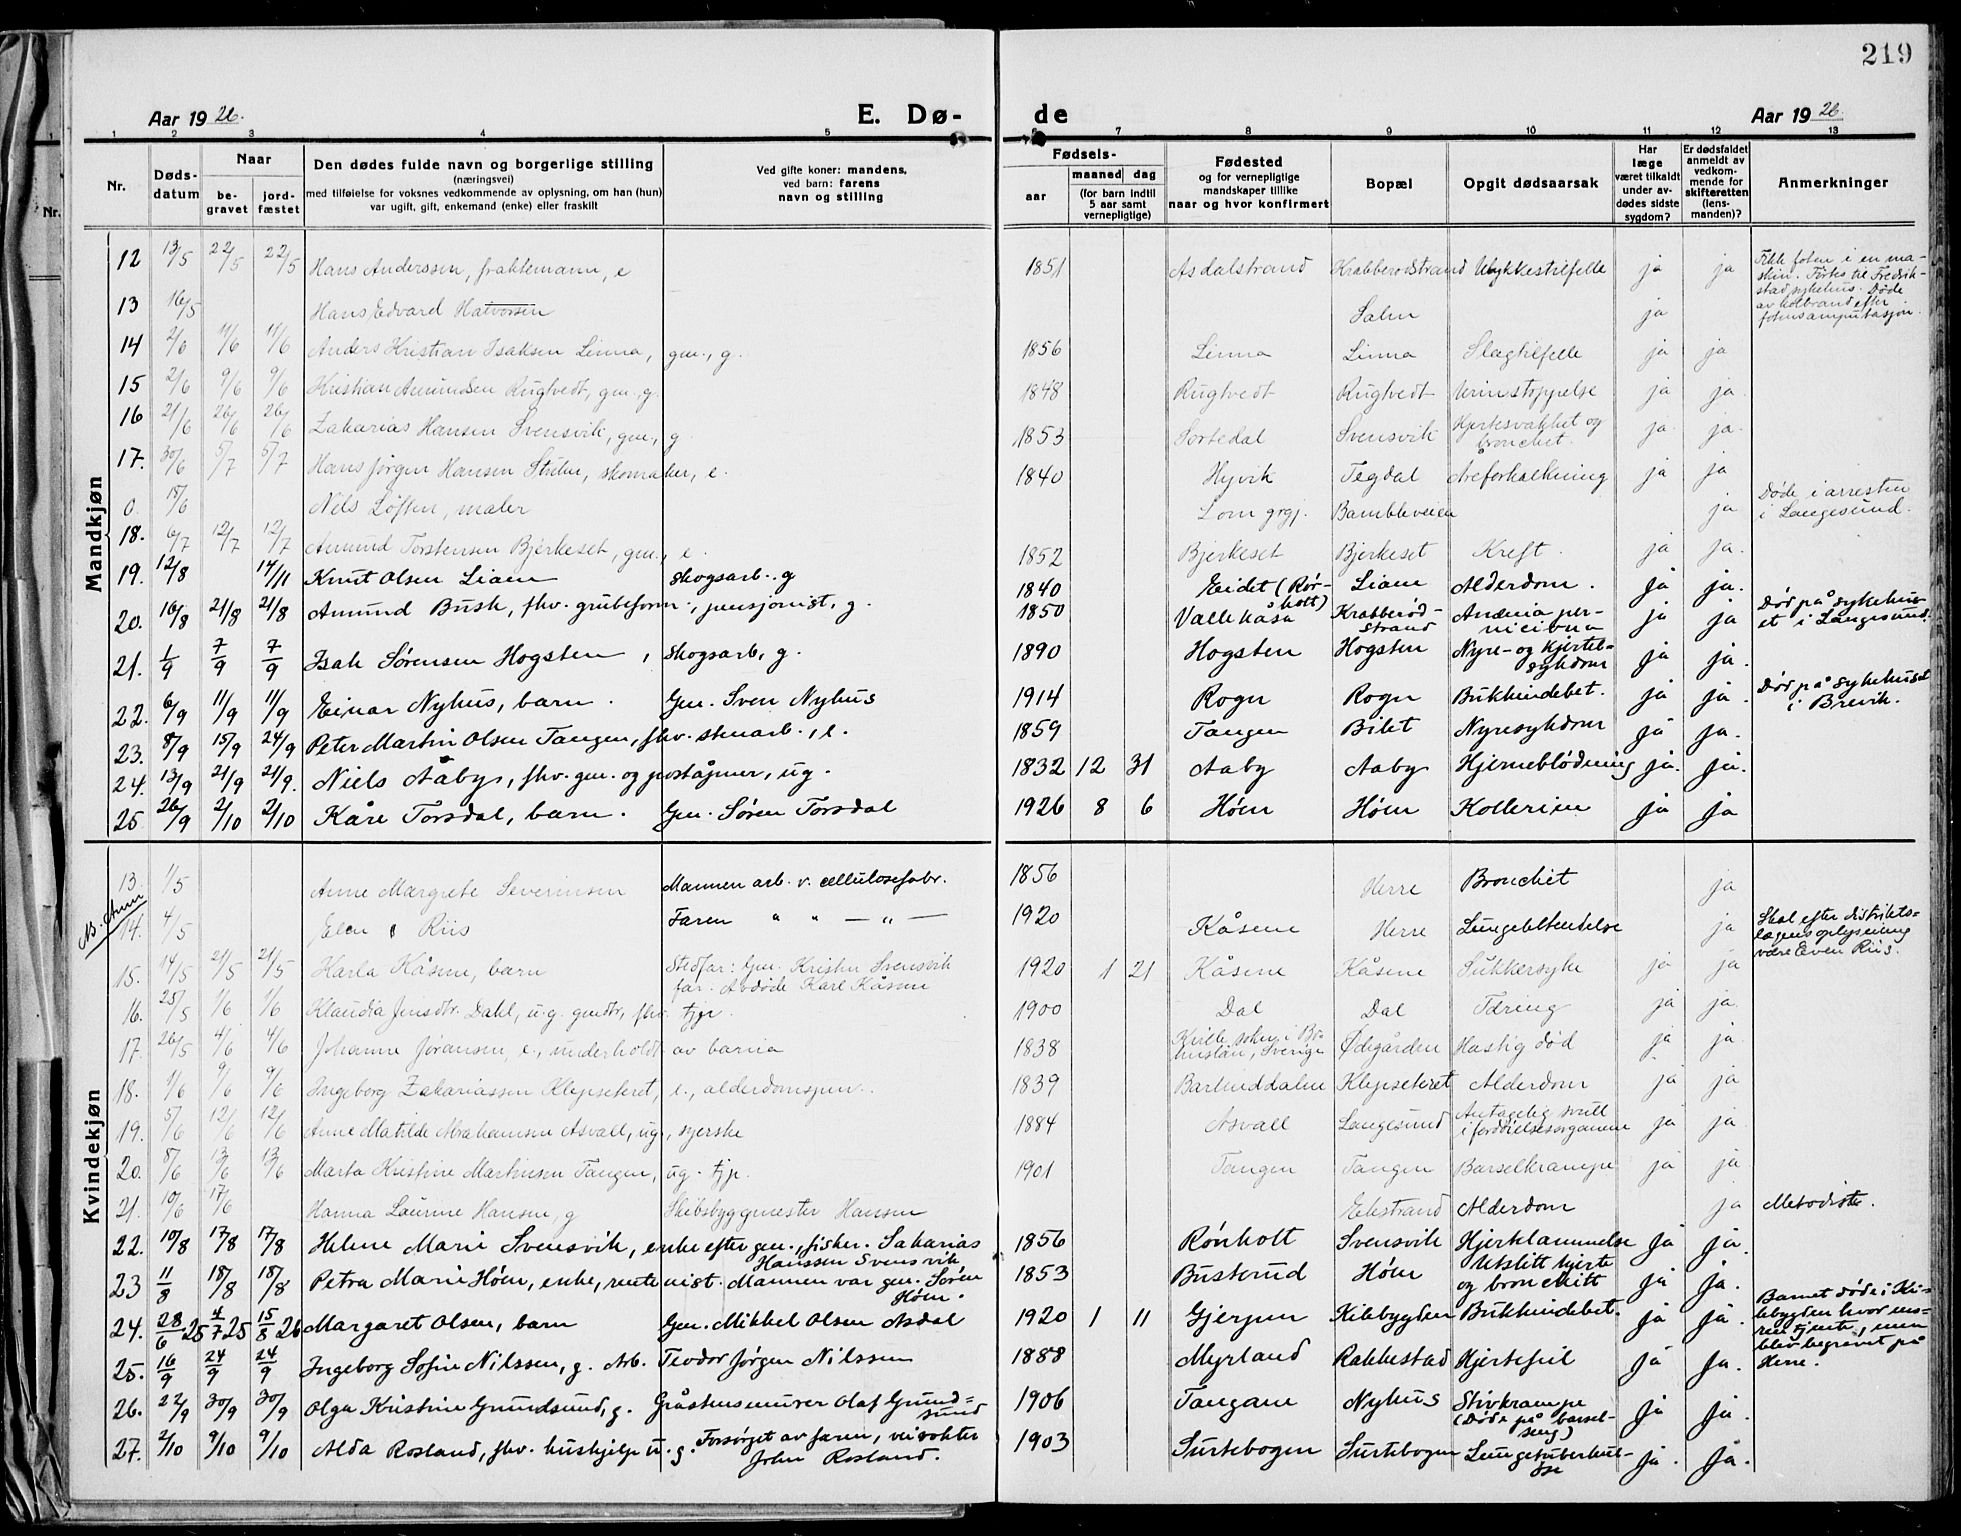 219
Aar 1926.
E. Dø-
de
Aar 1926
1 2 3 4 5 6 7 8 9 10 11 12 13
Nr.
Døds-
datum
Naar
be-
gravet
jord-
fæstet
Den dødes fulde navn og borgerlige stilling
(næringsvei)
med tilføielse for voksnes vedkommende av oplysning, om han (hun)
var ugift, gift, enkemand (enke) eller fraskilt
Ved gifte koner: mandens,
ved barn: farens
navn og stilling
Fødsels-
aar
maaned dag
(for barn indtil
5 aar samt
vernepligtige)
Fødested
og for vernepligtige
mandskaper tillike
naar og hvor konfirmert
Bopæl
Opgit dødsaarsak
Har
læge
været tilkaldt
under av-
dødes sidste
sygdom?
Er dødsfaldet
anmeldt av
vedkom-
mende for
skifteretten
(lens-
manden)?
Anmerkninger
Mandkjøn
12 13/5 22/5 22/5 Hans Anderssen, fraktemann, e 1851 Asdalstrand Krabberødstrand Ulykkestilfelle ja ja Fikk foten i en ma-
skin. Førtes til Fredrik-
stad sykehus. Døde
av koldbrand efter
fotensamputasjon.
13 16/5 Hans Edvard Halvorsen Salen ja
14 2/6 11/6 11/6 Anders Kristian Isaksen Linna, gm., g. 1856 Linna Linna Slagtilfelle ja ja
15 2/6 9/6 9/6 Kristian Amundsen Rugtvedt, gm., g. 1848 Rugtvedt Rugtvedt Urinstoppelse ja ja
16 21/6 26/6 26/6 Zakarias Hansen Svensvik, gm., g 1853 Sortedal Svensvik Hjertesvakhet og
bronchit. ja ja
17. 30/6 5/7 5/7 Hans Jørgen Hansen skomaker, e. 1840 Hyvik Tegdal Åreforkalkning ja ja
0. 18/6 Nels Løften, maler Lom grgj. Bambleveien ja Døde i arresten
i Langesund.
18. 6/7 12/7 12/7 Amund Torstensen Bjerkeset, gm., e. 1852 Bjerkeset Bjerkeset Kreft. ja ja.
19. 12/8 14/11 Knut Olsen Liane skogsarb. g 1840 Eidet (Rør-
holt) Liane Alderdom. ja ja.
20. 16/8 21/8 21/8 Amund Bush, fhv. grubeform., pensjonist, g. 1850 Valle kåsa Krabberød-
strand Anæmia per-
niciosa ja ja Død på sykehus-
et i Langesund.
21. 1/9 7/9 7/9 Isak Sørensen Hogsten, skogsarb, g. 1890 Hogsten Hogsten Nyre- og hjerte-
sykdom ja ja.
22. 6/9 11/9 11/9 Einar Nyhus, barn. Gm. Sven Nyhus 1914 Rogn Rogn Bukhindebet. ja ja. Død på sykehuset
i Brevik.
23. 8/9 15/9 24/9 Peter Martin Olsen Tangen, fhv. stenarb., e. 1859 Tangen Bilet Nyresykdom ja ja.
24. 13/9 21/9 21/9. Niels Aabye, fhv. gm. og poståpner, ug. 1832 12 31 Aaby Aaby Hjerneblødning ja. ja.
25 26/9 2/10 2/10 Kåre Torsdal, barn. Gm. Søren Torsdal 1926 8 6 Høen Høen Kollerine ja ja
Kvindekjøn
13. 1/5 Anne Margrete Severinsen Mannen arb. v. cellulosefabr. 1856 Herre Bronchit ja
NB. Anm
14. 4/5 Riis Faren " " — " — 1920 Kåsene Herre Lungebetendelse ja Skal efter distrikts-
lægens oplysning
være Even Riis.
15. 14/5 21/5 21/5 Karla Kåsene, barn Stedfar: Gm. Kristen Svensvik
far. Avdøde Karl Kåsene 1920 1 21 Kåsene Kåsene Sukkersyke ja ja
16. 25/5 1/6 1/6 Klaudia Jensdtr. Dahl, u.g. gmdtr., fhv. tjpi. 1900 Dal Dal Tæring ja ja
17. 26/5 4/6 4/6 Johanne Jøransen, e., underholdt av barna 1838 sokn i Bo-
huslän, Sverige Ødegården Hastig død ja ja.
18. 1/6 9/6 9/6 Ingeborg Zakariassen Klepseteret, e., alderdomspen. 1839 Barlinddalen Klepseteret Alderdom ja ja
19. 5/6 12/6 12/6 Anne Matilde Abrahamsen Asvall, ug., syerske 1884 Asvall Langesund Antagelig svull
i fordøielsesorganene ja ja
20. 8/6 13/6 13/6 Marta Kristine Martinsen Tangen, ug. tjp. 1901 Tangen Tangen Barselkrampe ja ja
21. 10/6 17/6 Hanna Laurine Hansen, g Skibsbyggmester Hansen Eikstrand Alderdom ja Metodist.
22. 10/8 17/8 17/8 Helene Marie Svensvik, enke efter gm., fisker. Sakarias
Hanssen Svensvik 1856 Rønholt Svensvik Hjerklammelse ja ja.
23 11/8 18/8 18/8 Petra Marie Høen, enke, rentenist. Mannen var gm. Søren
Høen. 1853 Busterud Høen Utslitt hjerte
og bronchitt ja ja.
24. 28/6 25 4/7 25 15/8 26 Margaret Olsen, barn Gm. Mikkel Olsen Asdal 1920 1 11 Gjerpen Kilebygden Bukhindebet. ja ja. Barnet døde i Ki-
lebygden hvor mo-
ren tjente, men
blev begravet på
Herre.
25. 16/9 24/9 24/9 Ingeborg Sofie Nilssen, g. Arb. Teodor Jørgen Nilssen 1888 Myrland Rakkestad Hjertefeil ja ja.
26. 22/9 30/9 30/9 Olga Kristine Grundsund, g. Gråstensmurer Olaf Grund-
sund 1906 Tangane Nyhus Stivkrampe
(Døde på barsel-
seng) ja ja.
27. 2/10 9/10 9/10 Alda Rosland, fhv. hushjelp u.g. Forsørget av faren, veivokter
John Rosland. 1903 Surtebogen Surtebogen Lungetuberkul-
ose ja. ja.